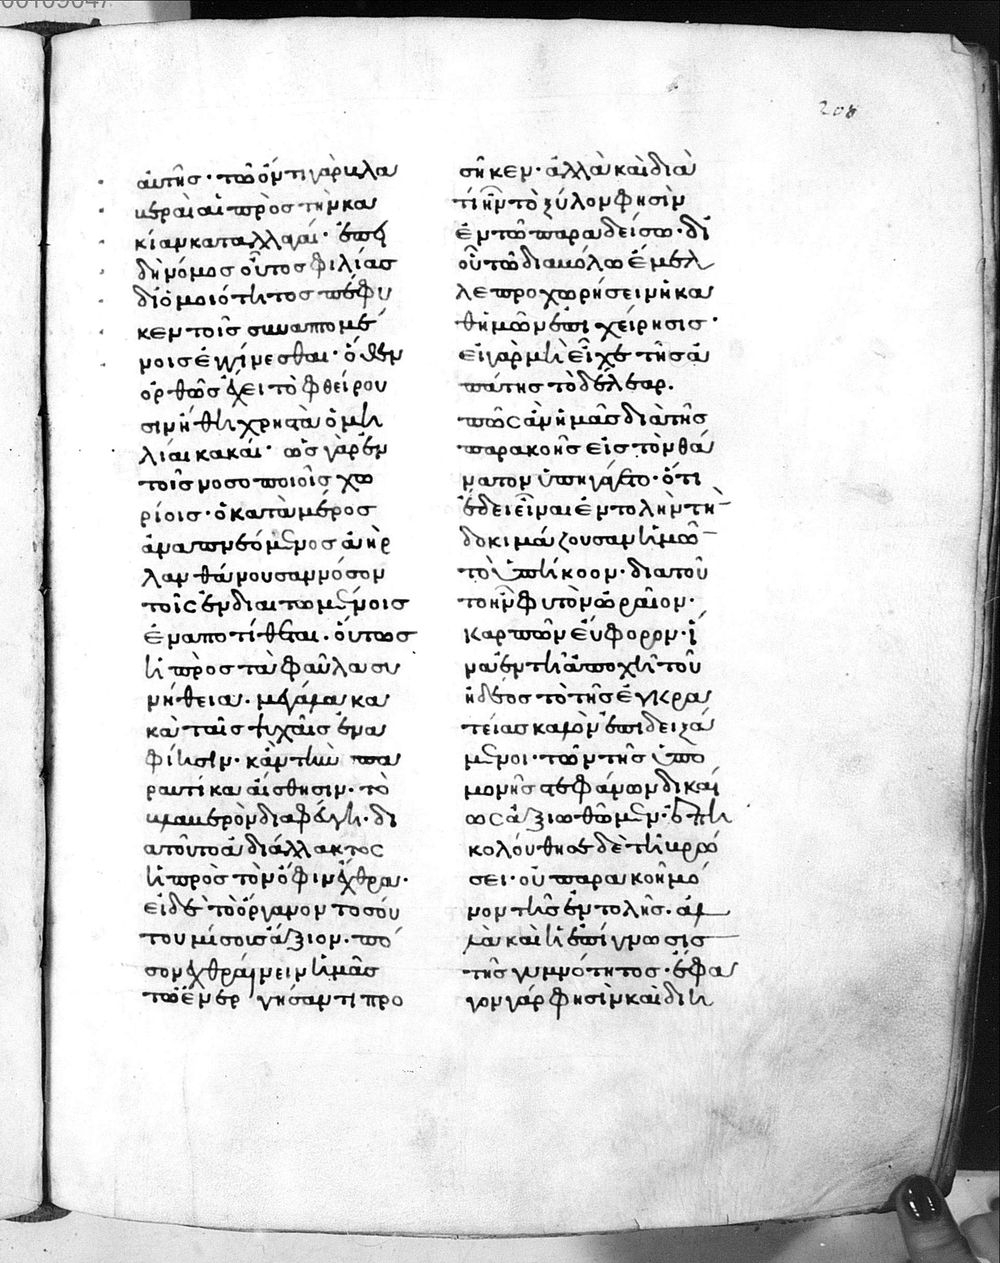 208
αὐτῆς· τῷ ὄντι γὰρ βλα
βεραὶ αἱ πρὸς τὴν κα
κίαν καταλλαγαί· ἐπει
δὴ νόμος οὗτος φιλίας
δι' ὁμοιότητος πέφυ
κεν τοῖς συναπτομέ
νοις ἐγγίνεσθαι· ὅθεν
ὀρθῶς ἔχει τὸ φθείρου
σιν ἤθη χρηστὰ ὁμι
λίαι κακαί· ὡς γὰρ ἐν
τοῖς νοσοποιοῖς χω
ρίοις· ὁ κατὰ μέρος
ἀναπνεόμενος ἀὴρ
λανθάνουσαν νόσον
τοῖς ἐνδιαιτωμένοις
ἐναποτίθεται· οὕτως
ἡ πρὸς τὰ φαῦλα συ
νήθεια· μεγάλα κα
κὰ ταῖς ψυχαῖς ἐνα
φίησιν· κἂν τὴν πα
ραυτίκα αἴσθησιν· τὸ
βλαβερὸν διαφύγῃ· δι
ὰ τοῦτο ἀδιάλλακτος
ἡ πρὸς τὸν ὄφιν ἔχθρα·
εἰ δὲ τὸ ὄργανον τοσού
του μίσους ἄξιον· πό
σον ἐχθραίνειν ἡμᾶς
τῷ ἐνεργήσαντι προ
σῆκεν· ἀλλὰ καὶ διὰ
τί ἦν τὸ ξύλον φησὶν
ἐν τῷ παραδείσῳ· δι'
οὗ τῷ διαβόλῳ ἔμελ
λε προχωρήσειν ἡ κα
θ' ἡμῶν ἐπιχείρησις·
εἰ γὰρ μὴ εἶχε τῆς ἀ
πάτης τὸ δέλεαρ.
πῶς ἂν ἡμᾶς διὰ τῆς
παρακοῆς εἰς τὸν θά
νατον ὑπηγάγετο· ὅτι
ἔδει εἶναι ἐντολὴν τὴν
δοκιμάζουσαν ἡμῶν
τὸ ὑπήκοον· διὰ τοῦ
το ἦν φυτὸν ὡραίων·
καρπῶν εὔφορον· ἵ
να ἐν τῇ ἀποχῇ τοῦ
ἡδέος τὸ τῆς ἐγκρα
τείας καλὸν ἐπιδειξά
μενοι· τῶν τῆς ὑπο
μονῆς στεφάνων δικαί
ως ἀξιωθῶμεν· ἐπη
κολούθησε δὲ τῇ βρώ
σει· οὐ παρακοὴ μό
νον τῆς ἐντολῆς· ἀλ
λὰ καὶ ἡ ἐπίγνωσις
τῆς γυμνότητος· ἔφα
γον γάρ φησὶν καὶ διη